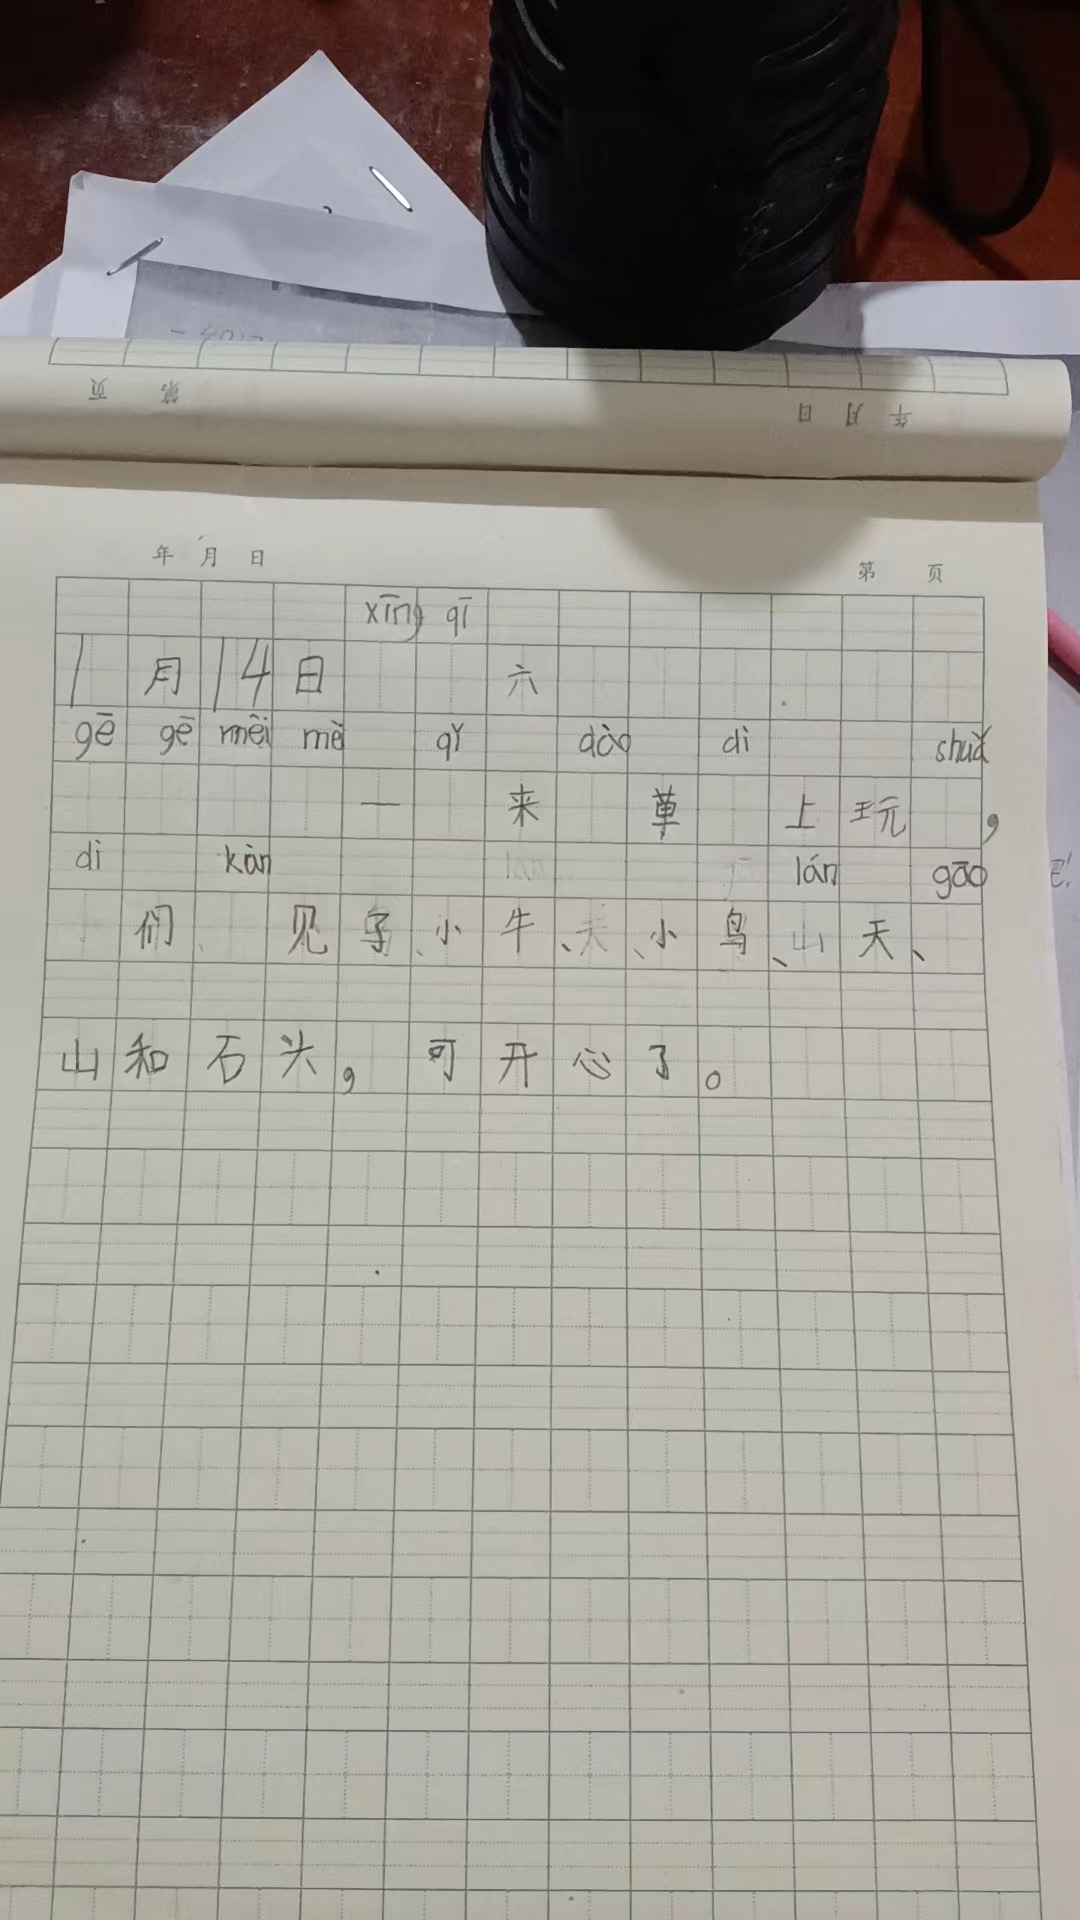 页 第 日 月 年
年 月 日 第 页
xīng qī
1月14日 六
gē gē mēi mè qǐ dào dì shuǎ
一 来 草 上玩 ，
dì kàn lán gāo
们 见 小牛、 、小鸟、山天、
山和石头，可开心了。